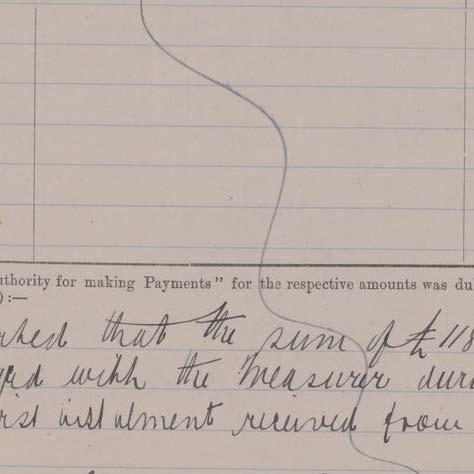 uthority for making Payments" for the respective amounts was du
) :—
rked that the sum of £118
with the Treasurer dur
rst instalment received from